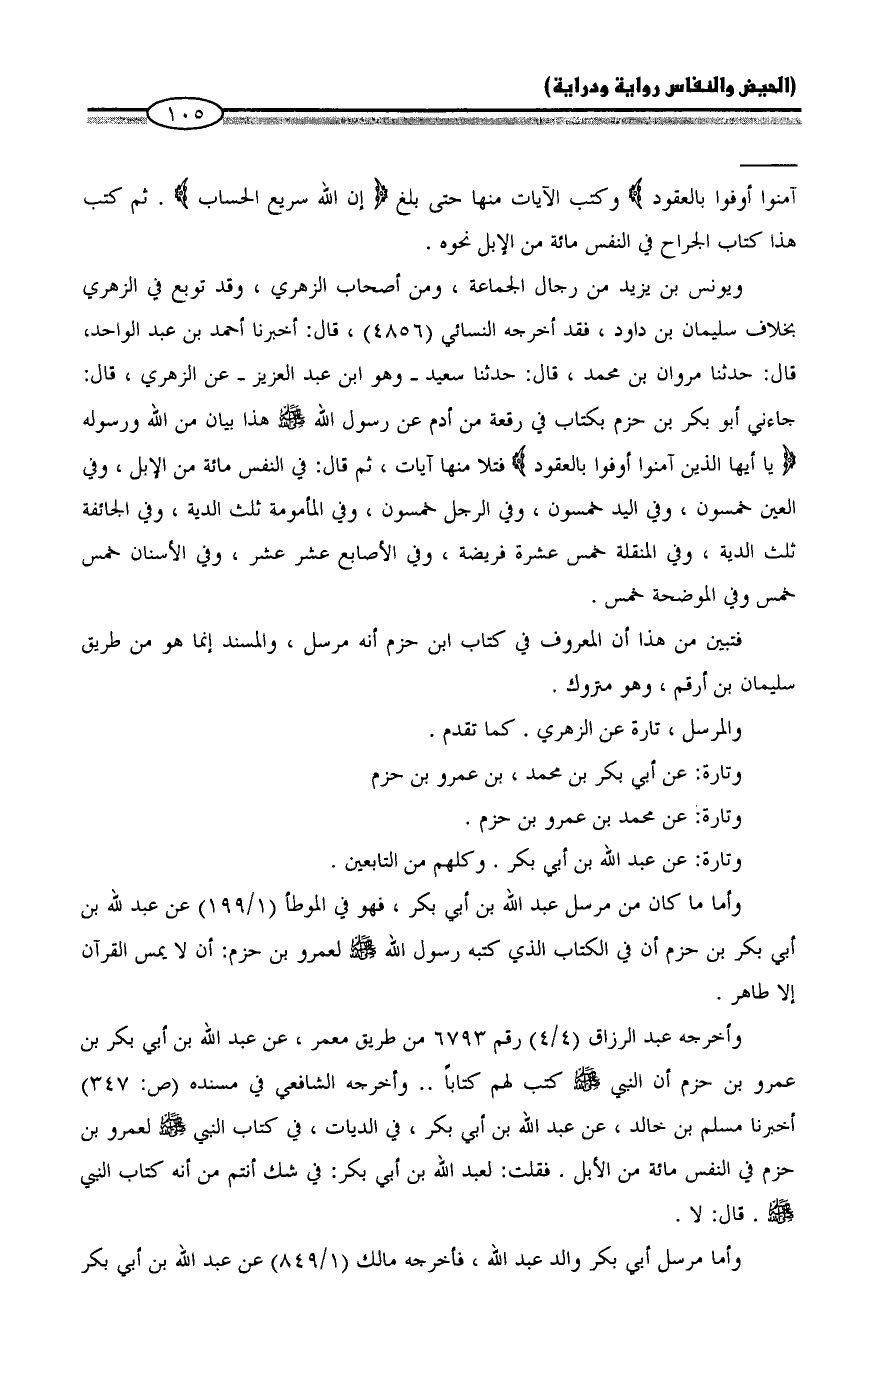 (الحيض والنفاس رواية ودراية)
١٠٥
آمنوا أوفوا بالعقود ﴾ وكتب الآيات منها حتى بلغ ﴿ إن الله سريع الحساب ﴾ . ثم كتب
هذا كتاب الجراح في النفس مائة من الإبل نحوه .
ويونس بن يزيد من رجال الجماعة ، ومن أصحاب الزهري ، وقد توبع في الزهري
بخلاف سليمان بن داود ، فقد أخرجه النسائي (٤٨٥٦) ، قال: أخبرنا أحمد بن عبد الواحد،
قال: حدثنا مروان بن محمد ، قال: حدثنا سعيد ـ وهو ابن عبد العزيز ـ عن الزهري ، قال:
جاءني أبو بكر بن حزم بكتاب في رقعة من أدم عن رسول الله ﷺ هذا بيان من الله ورسوله
﴿ يا أيها الذين آمنوا أوفوا بالعقود ﴾ فتلا منها آيات ، ثم قال: في النفس مائة من الإبل ، وفي
العين خمسون ، وفي اليد خمسون ، وفي الرجل خمسون ، وفي المأمومة ثلث الدية ، وفي الجائفة
ثلث الدية ، وفي المنقلة خمس عشرة فريضة ، وفي الأصابع عشر عشر ، وفي الأسنان خمس
خمس وفي الموضحة خمس .
فتبين من هذا أن المعروف في كتاب ابن حزم أنه مرسل ، والمسند إنما هو من طريق
سليمان بن أرقم ، وهو متروك .
والمرسل ، تارة عن الزهري . كما تقدم .
وتارة: عن أبي بكر بن محمد ، بن عمرو بن حزم
وتارة: عن محمد بن عمرو بن حزم .
وتارة: عن عبد الله بن أبي بكر . وكلهم من التابعين .
وأما ما كان من مرسل عبد الله بن أبي بكر ، فهو في الموطأ (١٩٩/١) عن عبد لله بن
أبي بكر بن حزم أن في الكتاب الذي كتبه رسول الله ﷺ لعمرو بن حزم: أن لا يمس القرآن
إلا طاهر .
وأخرجه عبد الرزاق (٤/٤) رقم ٦٧٩٣ من طريق معمر ، عن عبد الله بن أبي بكر بن
عمرو بن حزم أن النبي ﷺ كتب لهم كتاباً .. وأخرجه الشافعي في مسنده (ص: ٣٤٧)
أخبرنا مسلم بن خالد ، عن عبد الله بن أبي بكر ، في الديات ، في كتاب النبي ﷺ لعمرو بن
حزم في النفس مائة من الأبل . فقلت: لعبد الله بن أبي بكر: في شك أنتم من أنه كتاب النبي
ﷺ . قال: لا .
وأما مرسل أبي بكر والد عبد الله ، فأخرجه مالك (٨٤٩/١) عن عبد الله بن أبي بكر